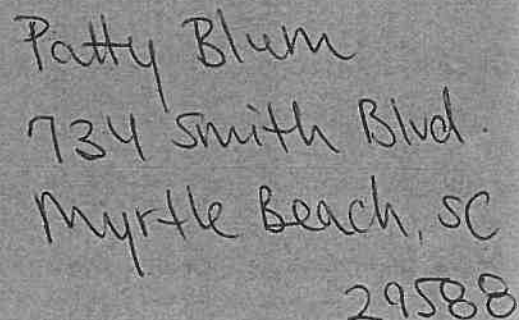 Patty Blum
734 Smith Blvd.
Myrtle Beach, SC
29588